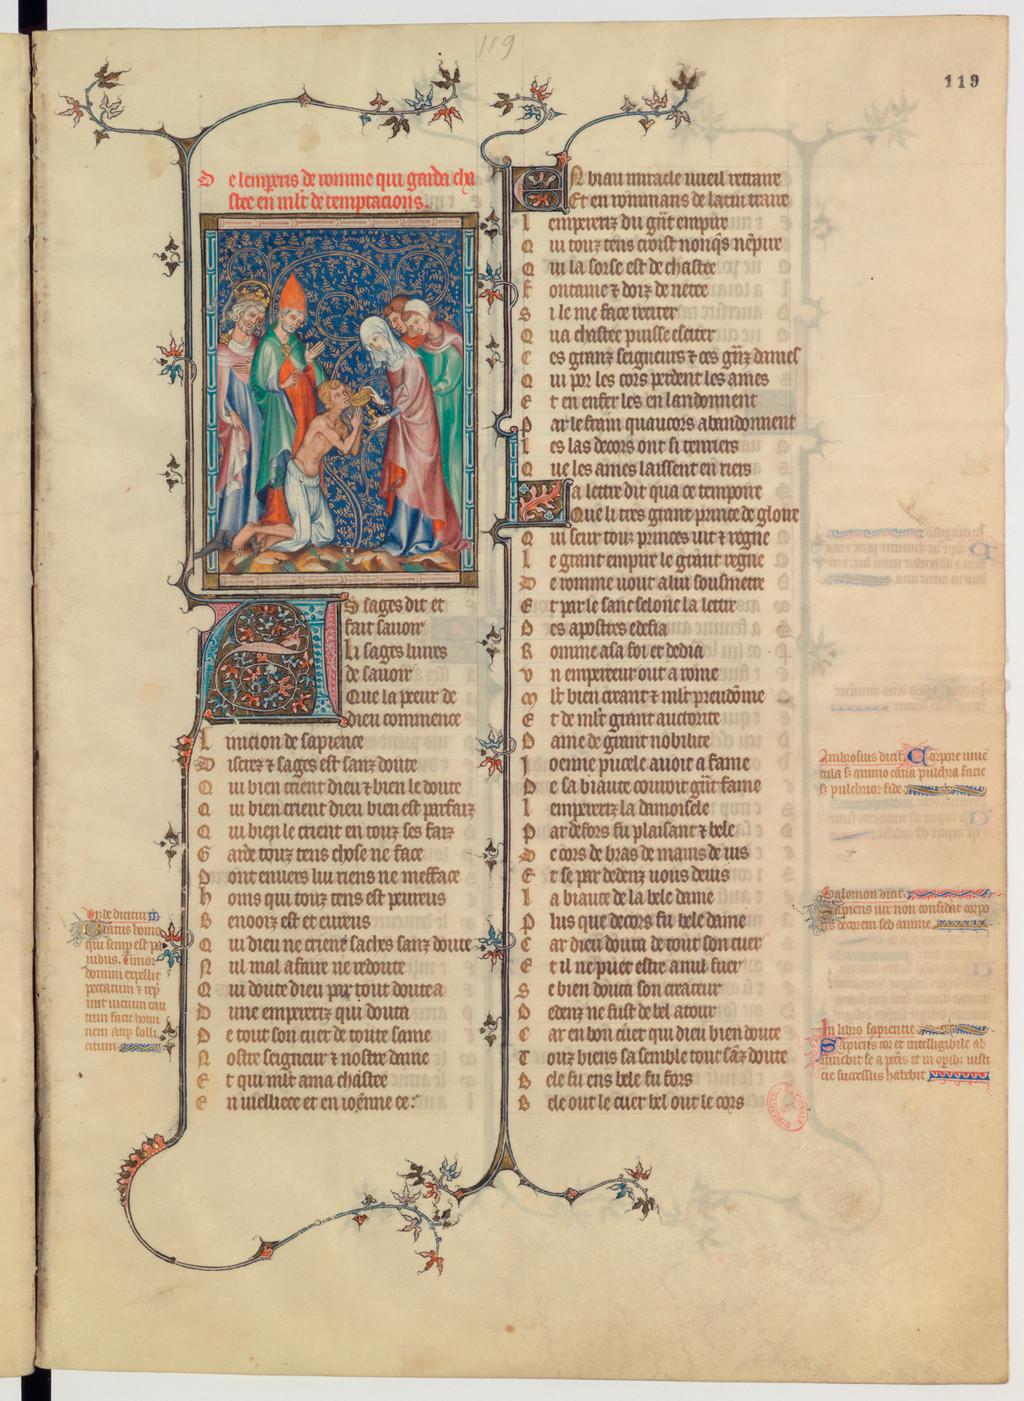 119
119
De lemperis de romme qui garda cha
stee en mlt de temptacions.
Es sages dit et
fait sauoir
Li sages liures
de sauoir
Que la peeur de
dieu commence
Linicion de sapience
Discrez & sages est sanz doute
Qui bien crient dieu & bien le doute
Qui bien crient dieu bien est parfaiz
Qui bien le crient en touz ses faiz
Garde touz tens chose ne face
Dont enuers lui riens ne mefface
Homs qui touz tens est peureus
Benooiz est et eureus
Qui dieu ne crient saches sanz doute
Nul mal a faire ne redoute
Qui doute dieu par tout doute a
Dune empereriz qui douta
De tout son cuer de toute same
Nostre seigneur & nostre dame
Et qui mlt ama chastee
En uielliece et en ioenne ee:
En biau miracle uueil retraire
Et en rommans de latin traire
Lempereriz du grant empire
Qui touz tens croist non q's nempire
Qui la sorse est de chastee
Fontaine & doiz de netee
Si le me face reciter
Qua chastee puisse esciter
Ces granz seigneurs & ces granz dames
Qui por les cors perdent les ames
Et en enfer les en landonnent
Par le frain quau cors abandonnent
Les las de cors ont si tenniers
Que les ames laissent en riers
La lettre dit qua ce tempoire
Que li tres grant prince de gloire
Qui seur touz princes uit & regne
Le grant empire le grant regne
De romme uout a lui sousmetre
Et par le sanc selonc la lettre
Des apostres edefia
Romme a sa foi et dedia
Un empereeur out a rome
Mlt bien creant & mlt preudome
Et de mlt grant auctorite
Dame de grant nobilite
Joenne pucele auoit a fame
De sa biaute couroit grant fame
Lempereriz la damoisele
Par defors fu plaisant & bele
De cors de bras de mains de uis
Et se par dedenz uous deuis
La biaute de la bele dame
Plus que de cors fu bele dame
Car dieu douta de tout son cuer
Et il ne puet estre a nul fuer
Se bien douta son creatour
Dedenz ne fust de bel atour
Car en bon cuer qui dieu bien doute
Touz biens sa semble tout sanz doute
Bele fu ens bele fu fors
Bele out le cuer bel out le cors
Unde dicitur
Beatus homo
qui semper est pa
uidus. Timor
domini expellit
peccatum &
Ambrosius dicit. Corpore
cula si animo cara pulchra facie
si pulchrior fide
Salomon dicit
Sapiens uir non considat corpo
ris decorem sed anime
In libro sapientie
Sapiens cor et intelligibile ab
stinebit se a peccatis et in operibus iusti
cie successus habebit